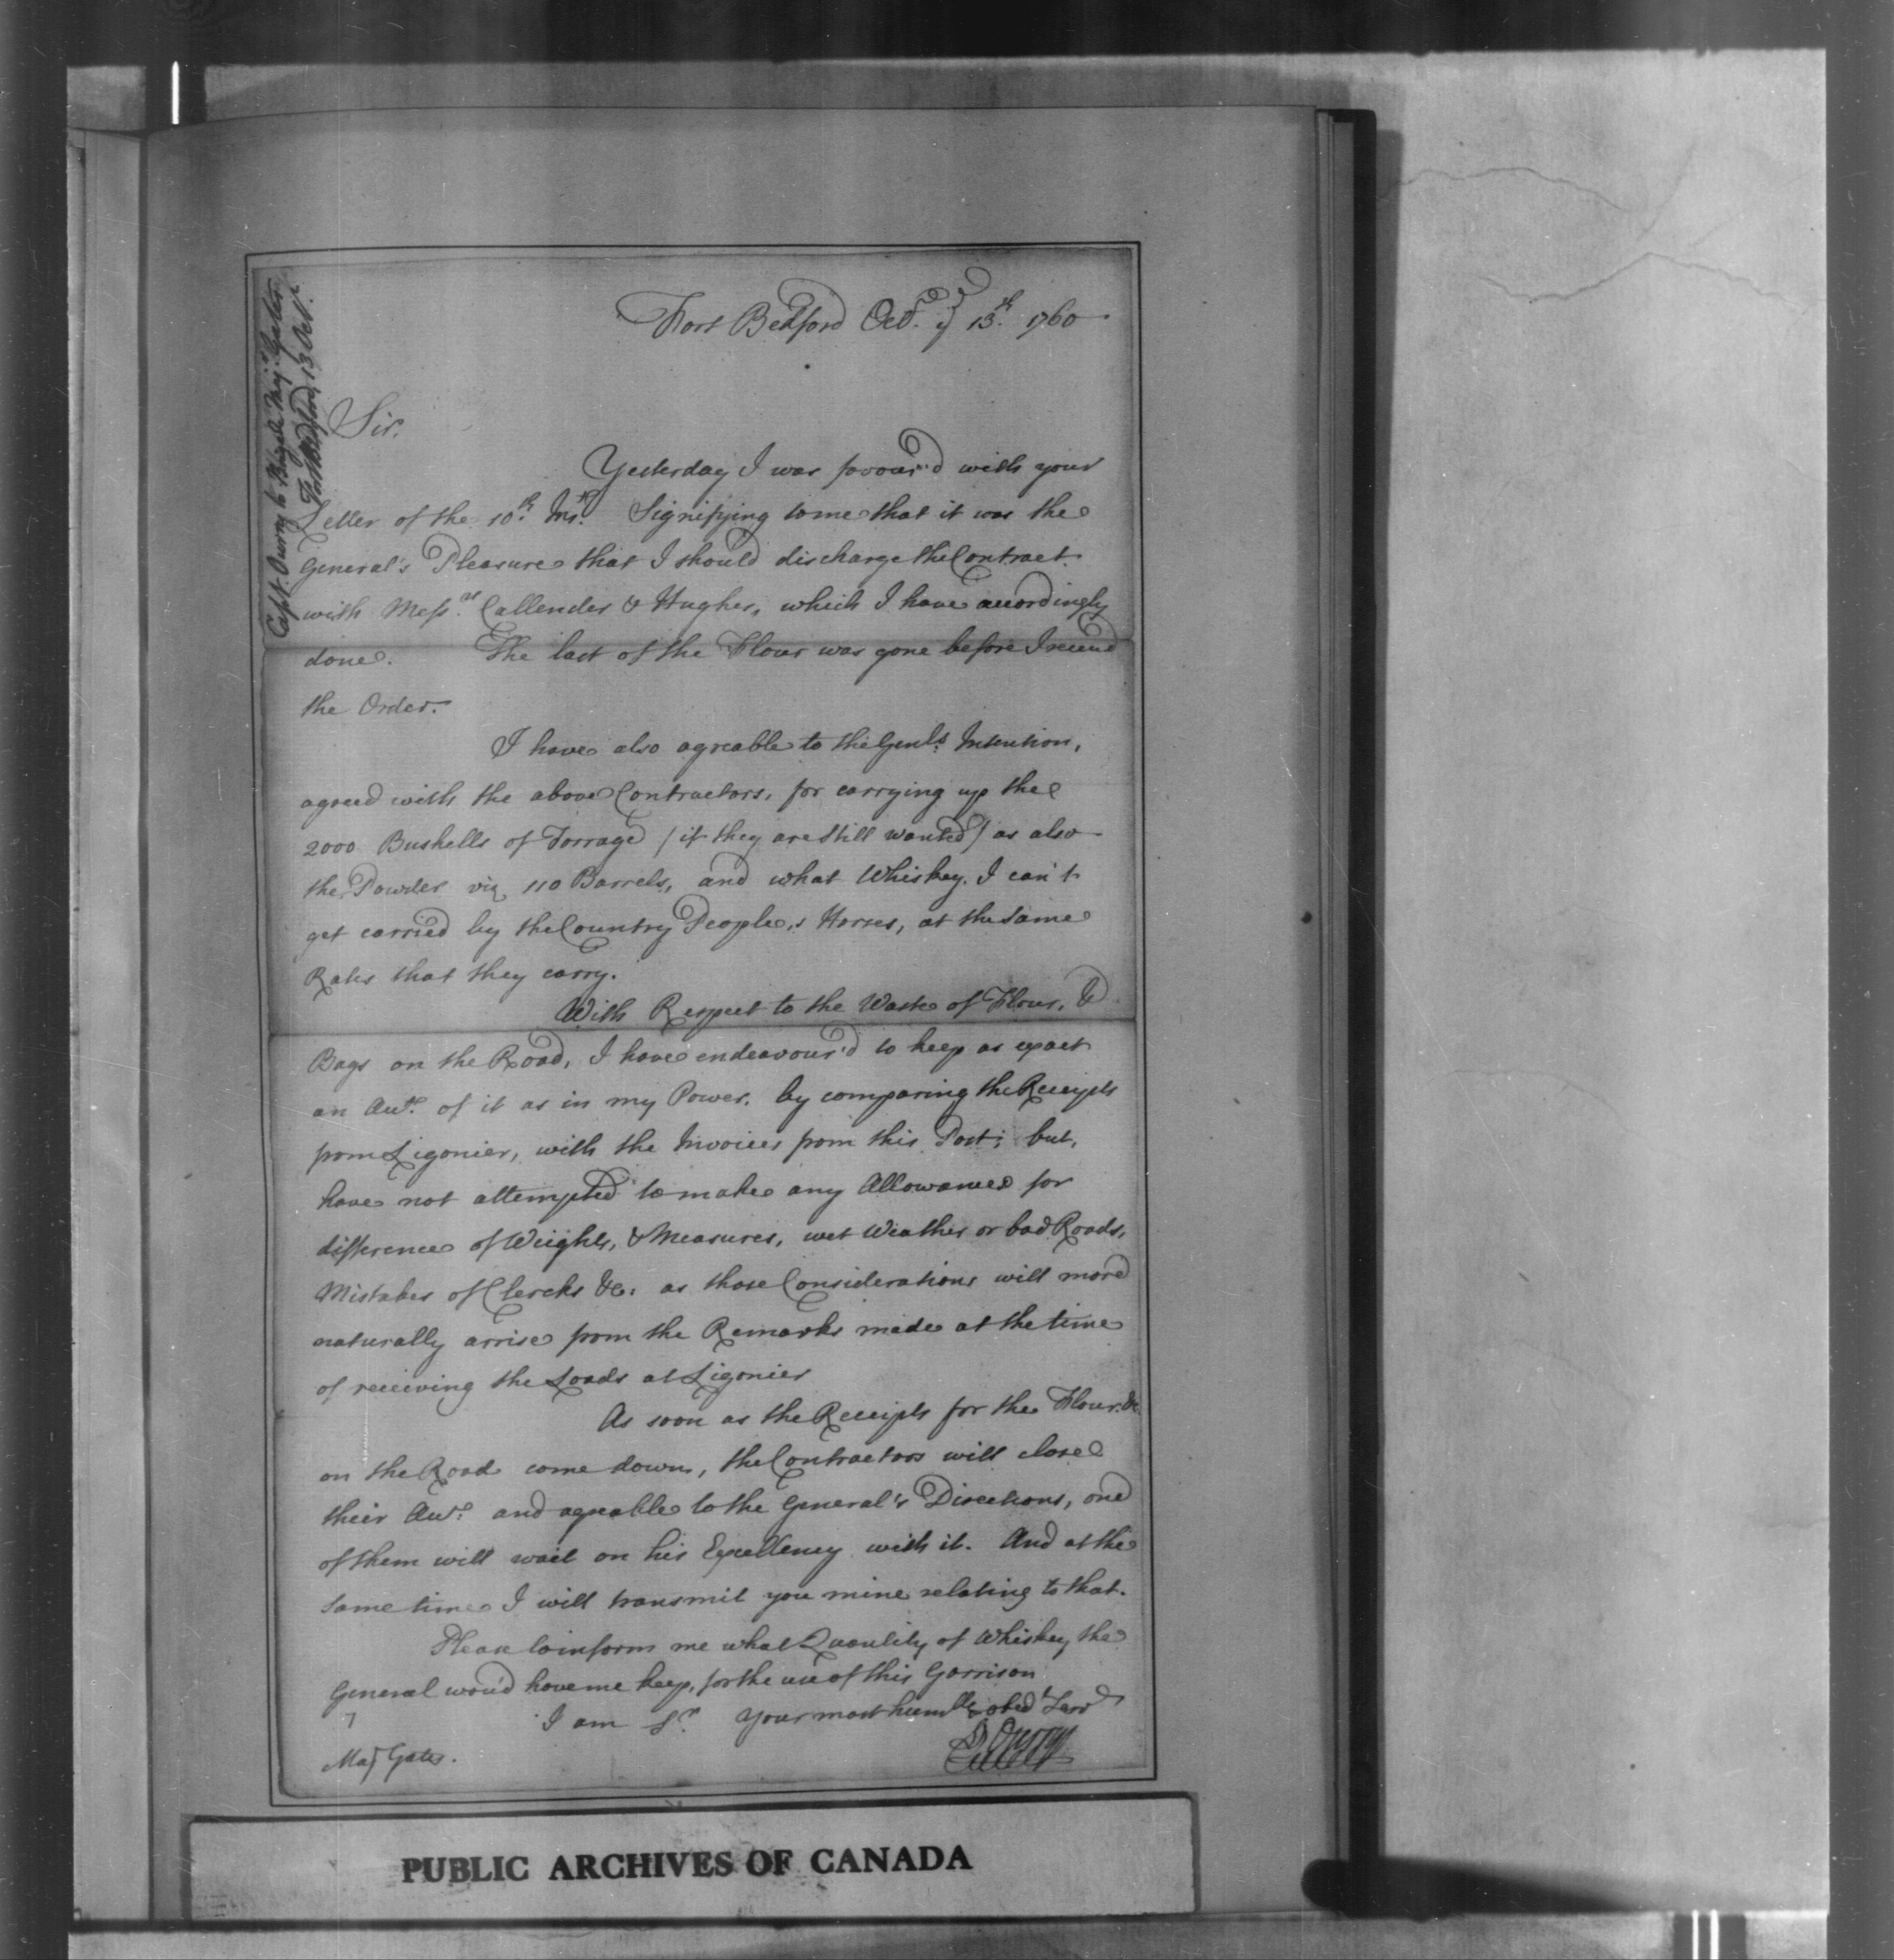 Capt. Ourry to Brigde Maj.r Gates
Fort Bedford, 13 Oct.r
Fort Bedford Oct.r ye 13.th 1760
Sir.
Yesterday I was favour'd with your
Letter of the 10.th Inst. Signifying to me that it was the
General's Pleasure that I should discharge the Contract
with Mess.rs Callender & Hughes, which I have accordingly
done. The last of the Flour was gone before I receiv'd
the Order.
I have also agreable to the Genl.s Intention,
agreed with the above Contractors, for carrying up the
2000 Bushells of Forrage (if they are still wanted) as also
the Powder viz 110 Barrels, and what Whiskey I can't
get carried by the Country People,s Horses, at the same
Rates that they carry.
With Respect to the Waste of Flour, &
Bags on the Road, I have endeavour'd to keep as exact
an Acct. of it as in my Power. by comparing the Receipts
from Ligonier, with the Invoices from this Post; but,
have not attempted to make any Allowances for
difference of Weights, & Measures, wet Weather or bad Roads,
Mistakes of Clercks &c: as those Considerations will more
naturally arrise from the Remarks made at the time
of receiving the Loads at Ligonier
As soon as the Receipts for the Flour &c.
on the Road come down, the Contractors will close
their Acct. and agreable to the General's Directions, one
of them will wait on his Excellency with it. And at the
same time I will transmit you mine relating to that.
Please to inform me what Quantity of Whiskey the
General wou'd have me keep, for the use of this Garrison
I am S.r Your most humble & obedt Servt
Maj Gates.
L Ourry
PUBLIC ARCHIVES OF CANADA